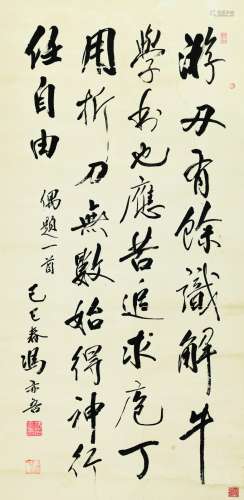 游刃有餘識解牛
學書也應苦追求庖丁
用折刀無數始得神行
任自由
偶題一首
己巳春馮亦吾